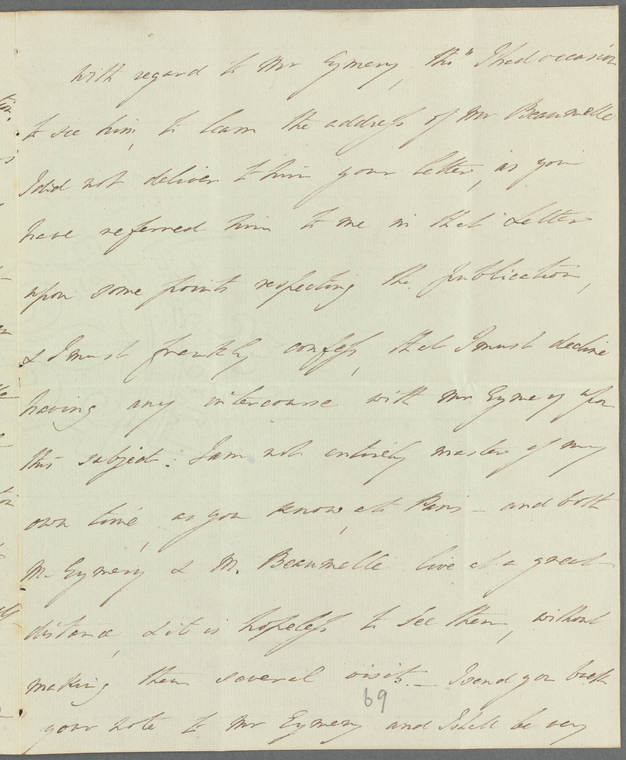 With regard to Mr Eymery, tho' I had occasion
to see him, to learn the address of Mr Beaumelle
I did not deliver to him your letter, as you
have referred him to me in that Letter
upon some points respecting the publication,
& I must frankly confess, that I must decline
having any intercourse with Mr Eymery upon
this subject. I am not entirely master of my
own time, as you know, at Paris - and both
M. Eymery & M. Beaumelle live at a great
distance, & it is hopeless to see them, without
making them several visits. - I send you back
your note to Mr Eymery and I shall be very
69